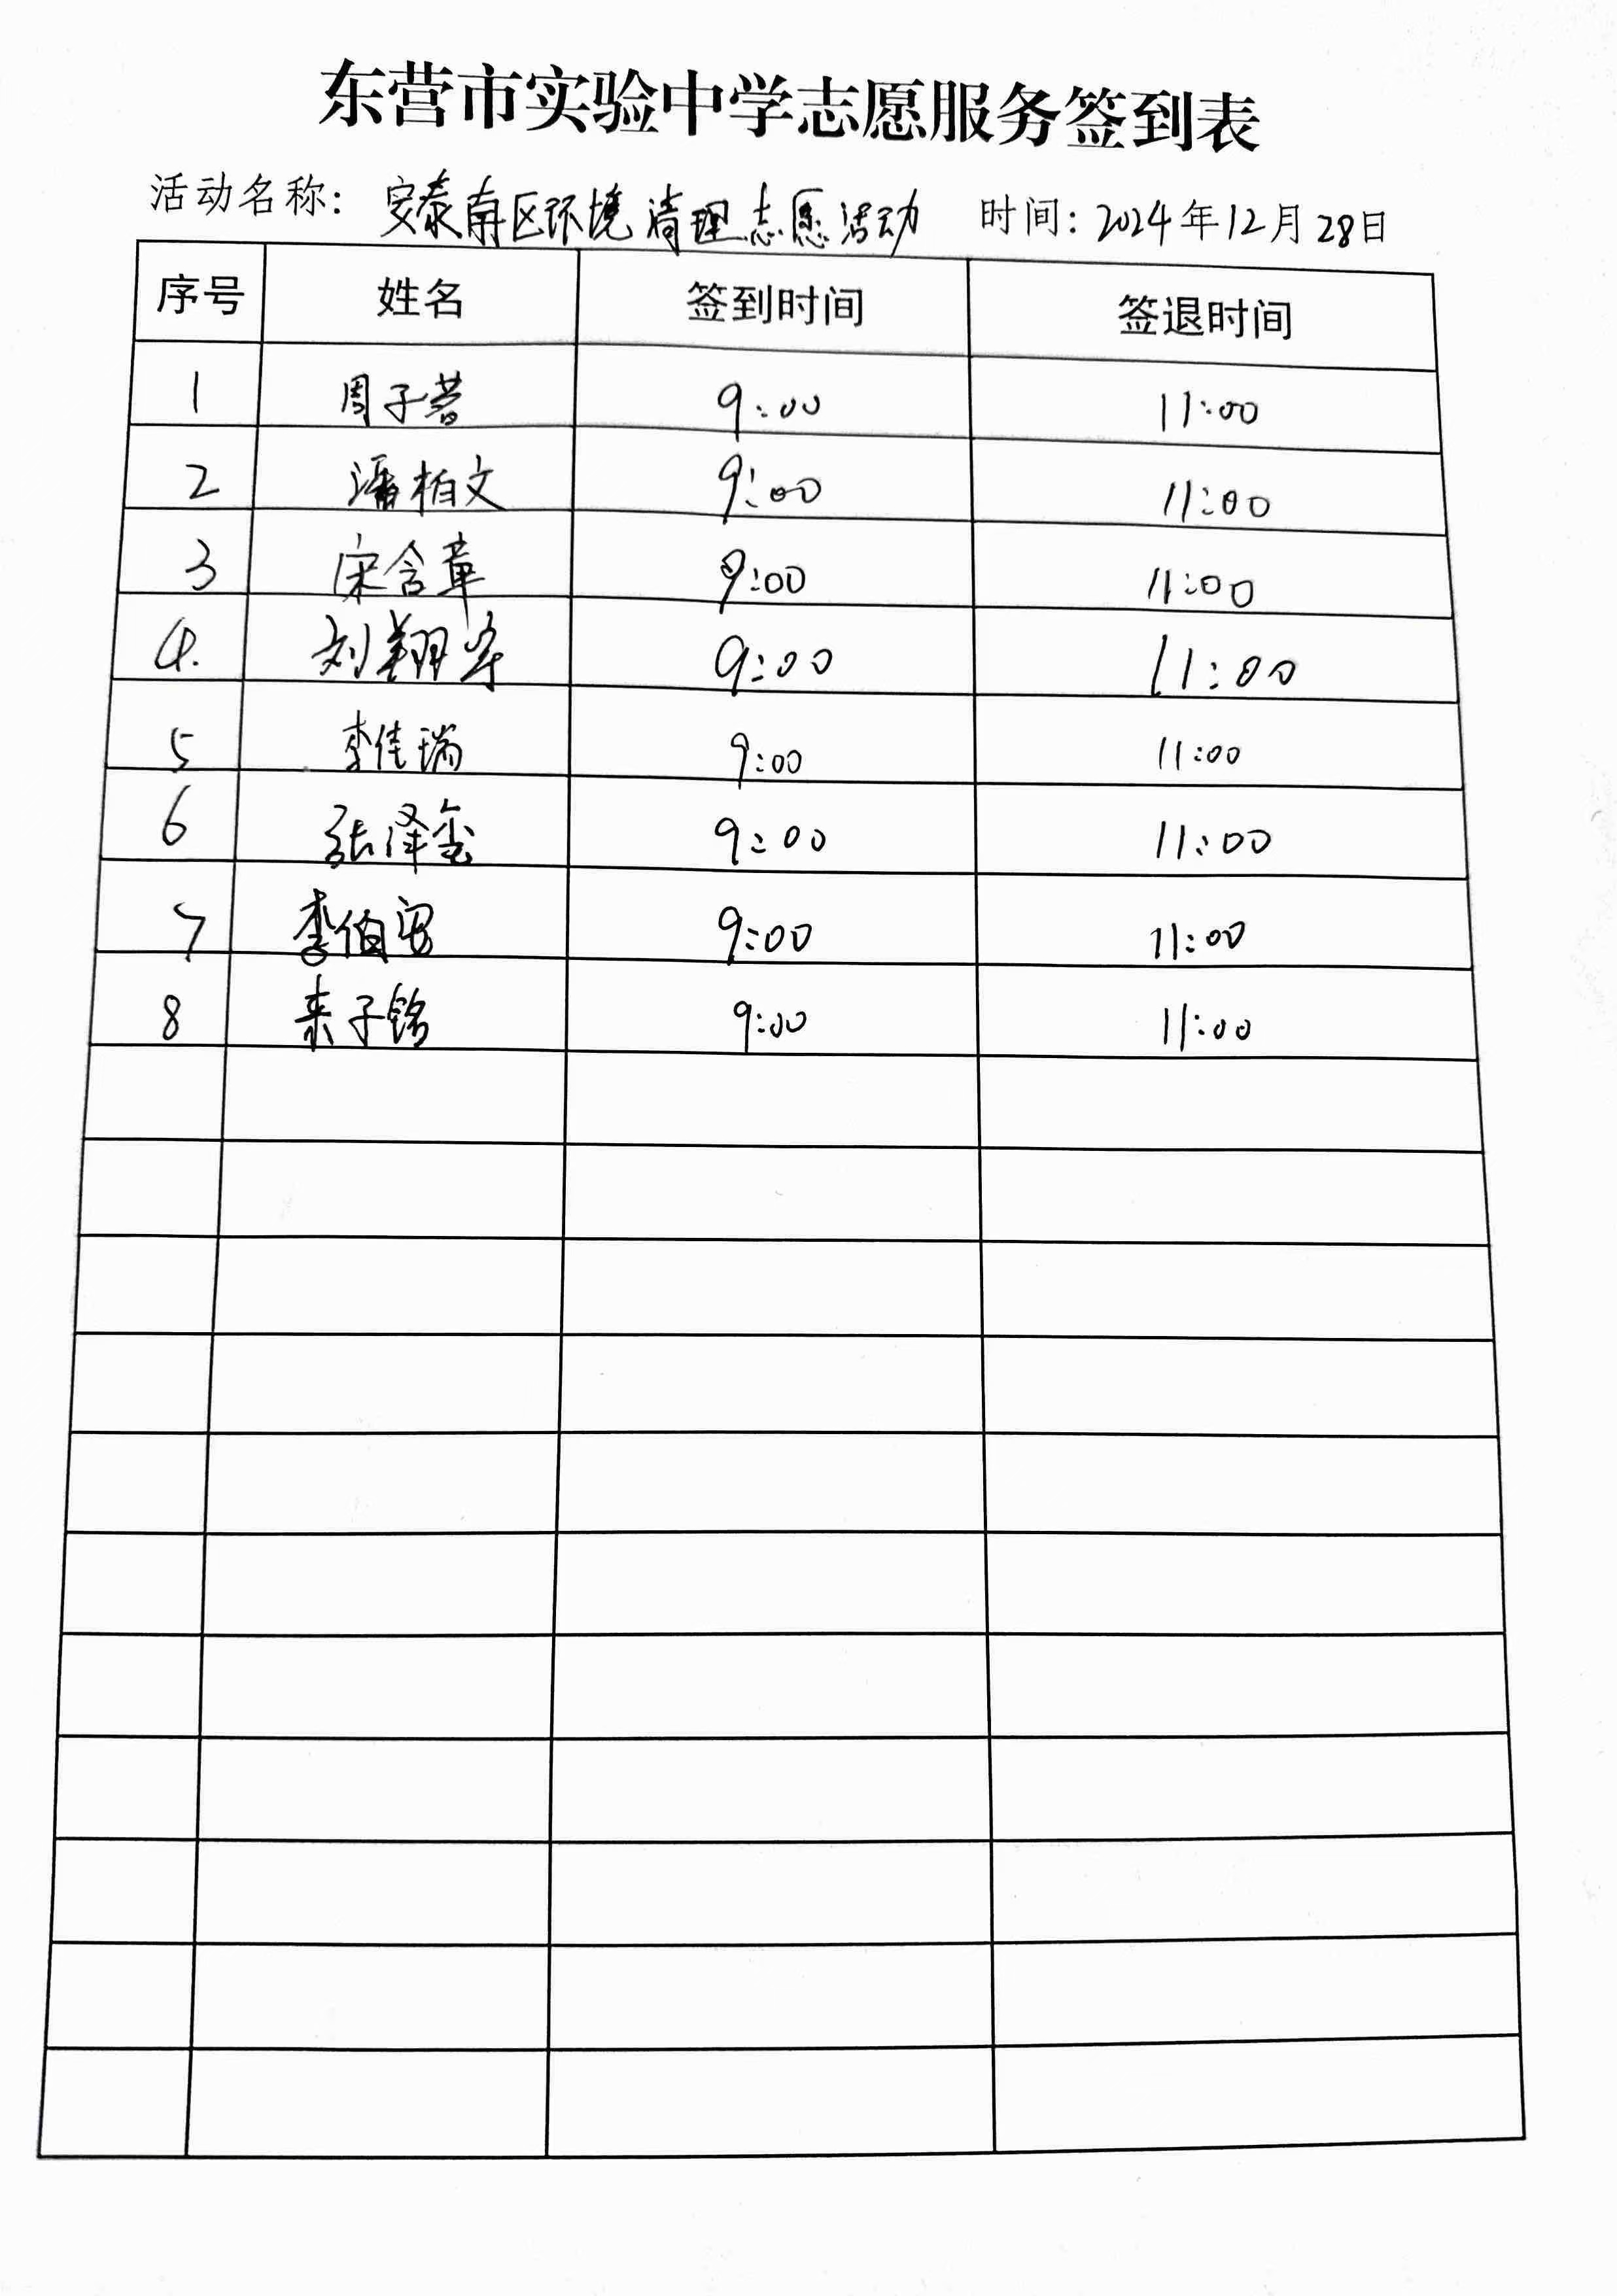 东营市实验中学志愿服务签到表
活动名称：安泰南区环境清理志愿活动 时间：2024年12月28日
序号 姓名 签到时间 签退时间
1 周子 9:00 11:00
2 潘柏文 9:00 11:00
3 宋含章 9:00 11:00
4. 刘翔 9:00 11:00
5 李佳瑞 9:00 11:00
6 张泽玺 9:00 11:00
7 李伯 9:00 11:00
8 来子铭 9:00 11:00